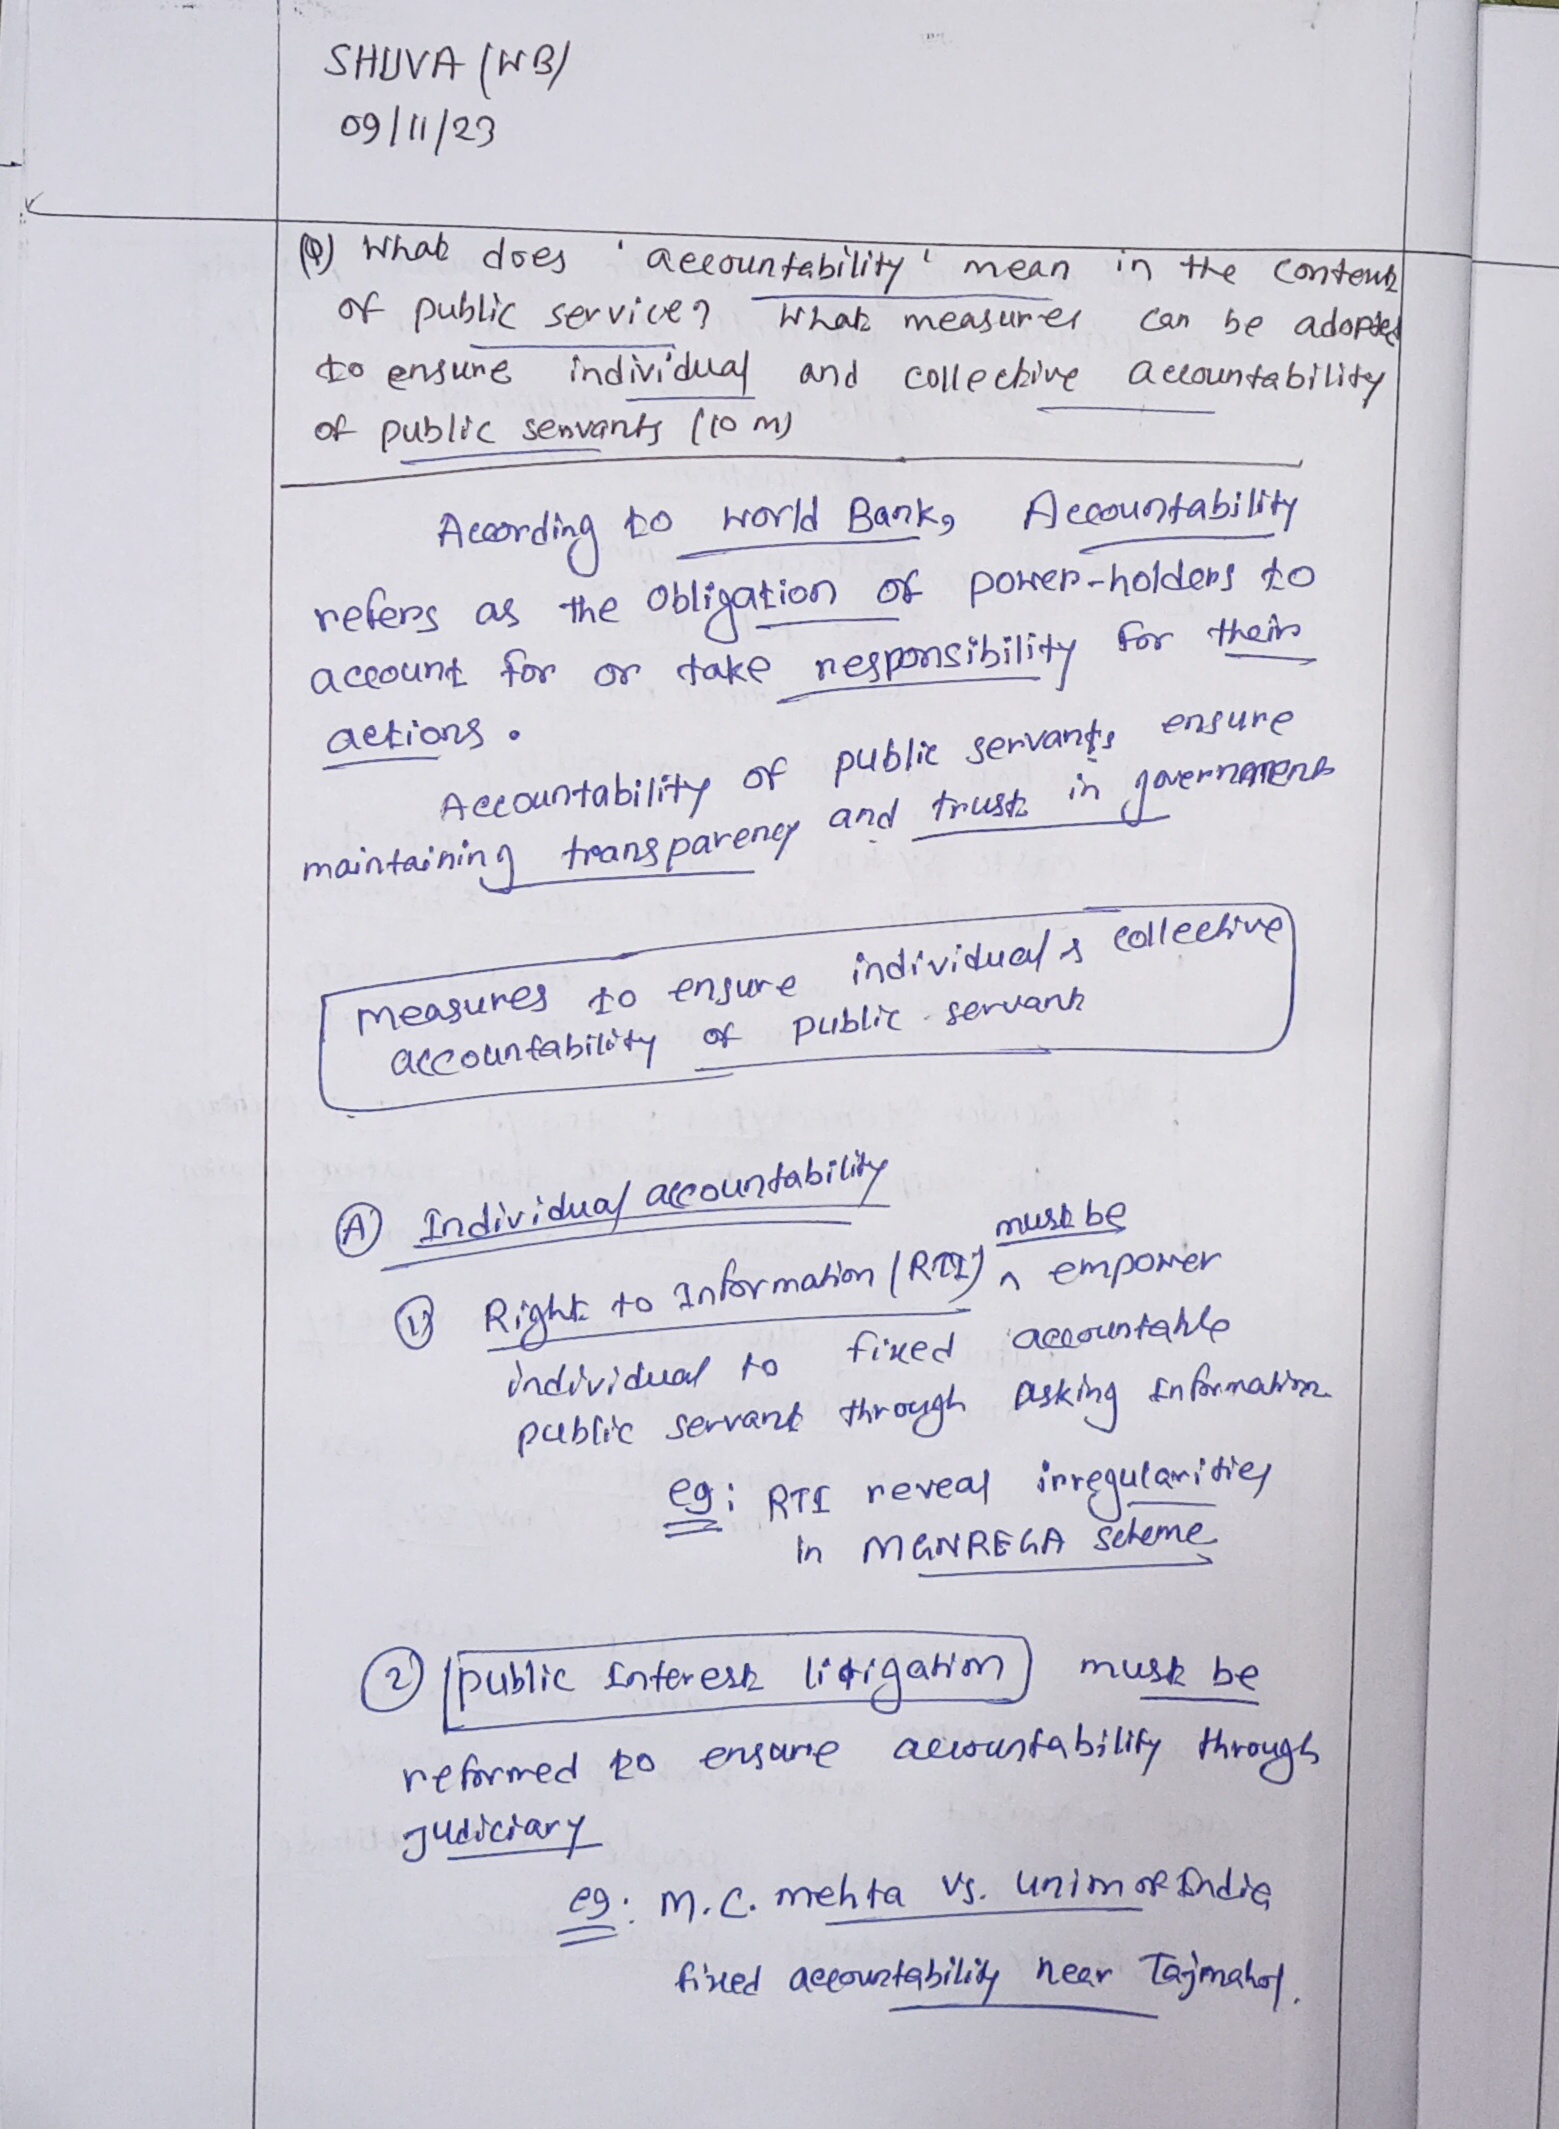 SHUVA (WB)
09/11/23
(Q) What does 'accountability' mean in the context
of public service? What measures can be adopted
to ensure individual and collective accountability
of public servants (10 m)
According to World Bank, Accountability
refers as the obligation of power-holders to
account for or take responsibility for their
actions.
Accountability of public servants ensure
maintaining transparency and trust in government
measures to ensure individual & collective
accountability of public servant
(A) Individual accountability
must be
(1) Right to Information (RTI) ^ empower
individual to fixed accountable
public servant through asking information
eg: RTI reveal irregularities
in MGNREGA scheme
(2) public Interest litigation must be
reformed to ensure accountability through
judiciary
eg: M.C. mehta vs. Union of India
fixed accountability near Tajmahal.